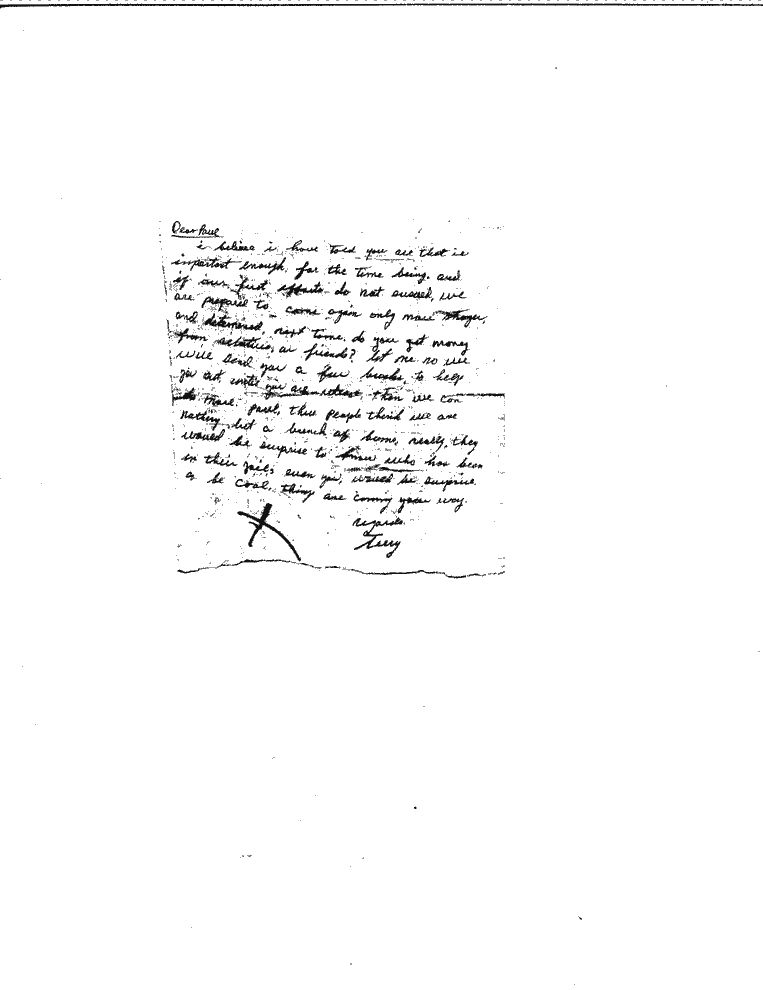 Dear Paul
i believe i have told you all that is
important enough, for the time being. and
if our first efforts do not succed, we
are prepared to come again only more stronger,
and determined, next time. do you get money
from relatives, or friends? let me no we
will send you a few bucks, to help
you out until you are, then we can
do more. paul, these people think we are
nothing but a bunch of bums, really, they
would be surprise to know who has been
in their jails, even you, would be surprise
be cool, things are coming your way.
regards
Terry